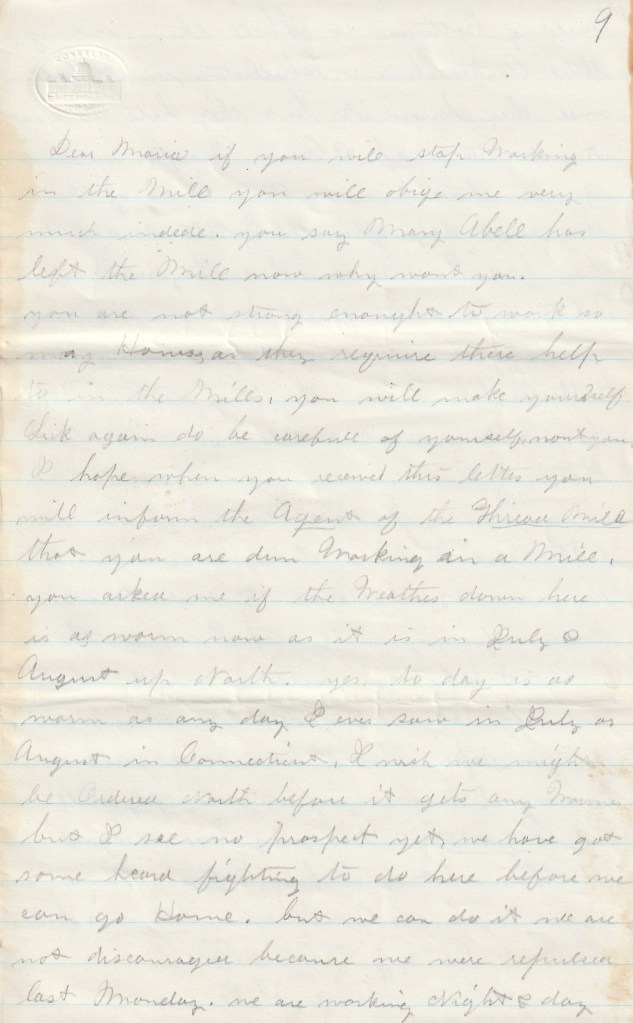 9
Dear Maria if you will stop Working
in the Mill you will obige me very
much indede. you say Mary Abell has
left the Mill now why wont you.
you are not strong enought to work so
many Houres as they require there help
to in the Mills, you will make yourself
Sick again do be carefull of yourself wont you
I hope when you received this letter you
will inform the Agent of the Thread Mill
that you are dun Working in a Mill.
you asked me if the Weather down here
is as worm now as it is in July &
August up North. yes to day is as
worm as any day I ever saw in July or
August in Connecticut, I wish we might
be Ordered North before it gets any Warmer
but I see no prospect yet, we have got
some heard fighting to do here before we
can go Home. but we can do it we are
not discouraged because we were repulsed
last Monday. we are working Night & day